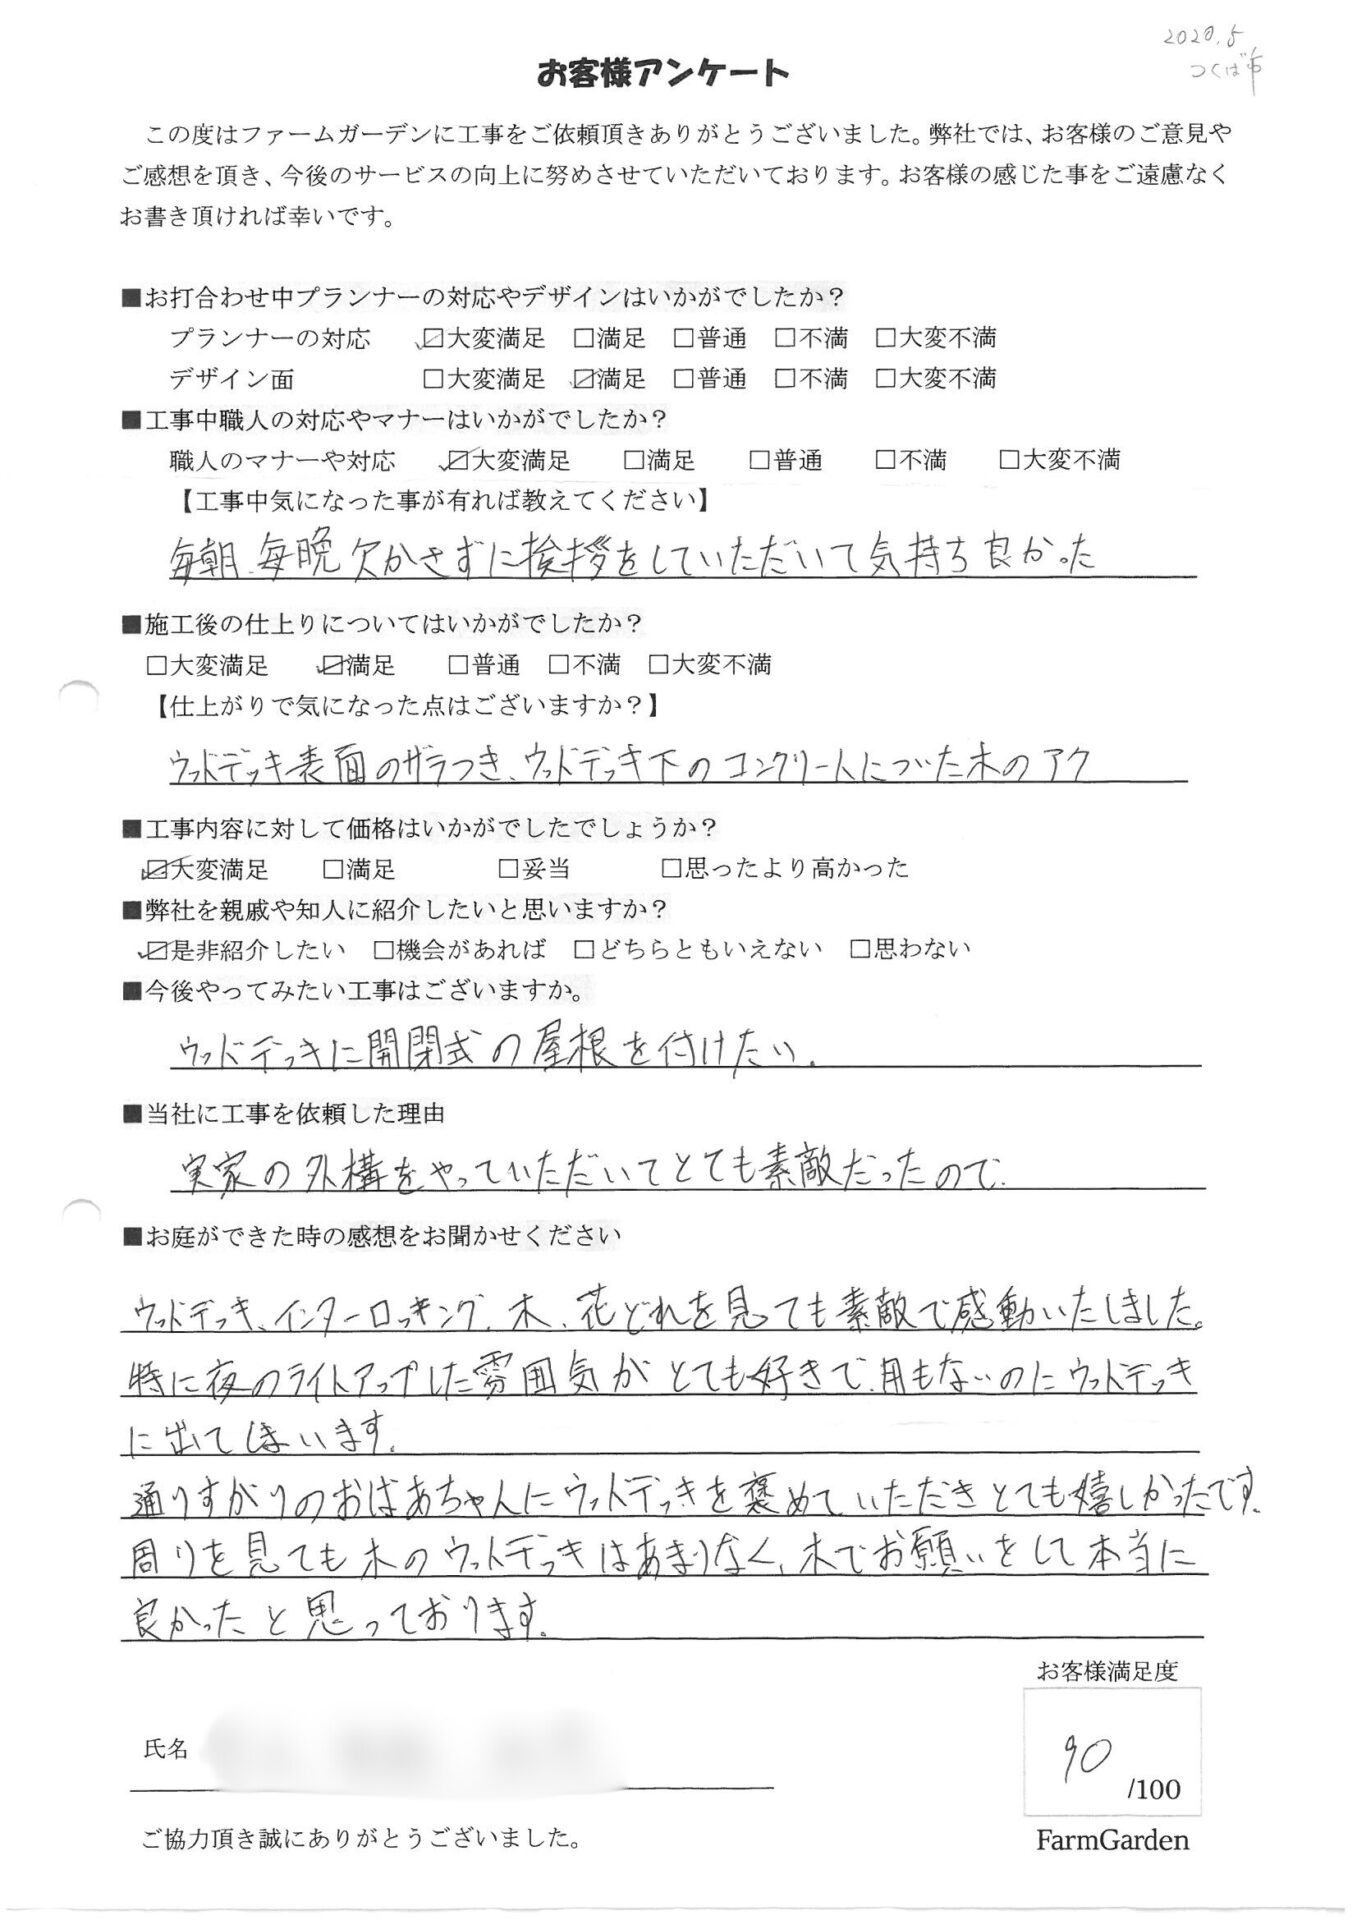 2020.5
つくば市
お客様アンケート
この度はファームガーデンに工事をご依頼頂きありがとうございました。弊社では、お客様のご意見や
ご感想を頂き、今後のサービスの向上に努めさせていただいております。お客様の感じた事をご遠慮なく
お書き頂ければ幸いです。
■お打合わせ中プランナーの対応やデザインはいかがでしたか？
プランナーの対応 ☑大変満足 □満足 □普通 □不満 □大変不満
デザイン面 □大変満足 ☑満足 □普通 □不満 □大変不満
■工事中職人の対応やマナーはいかがでしたか？
職人のマナーや対応 ☑大変満足 □満足 □普通 □不満 □大変不満
【工事中気になった事が有れば教えてください】
毎朝、毎晩欠かさずに挨拶をしていただいて気持ち良かった
■施工後の仕上りについてはいかがでしたか？
□大変満足 ☑満足 □普通 □不満 □大変不満
【仕上がりで気になった点はございますか？】
ウッドデッキ表面のザラつき、ウッドデッキ下のコンクリートについた木のアク
■工事内容に対して価格はいかがでしたでしょうか？
☑大変満足 □満足 □妥当 □思ったより高かった
■弊社を親戚や知人に紹介したいと思いますか？
☑是非紹介したい □機会があれば □どちらともいえない □思わない
■今後やってみたい工事はございますか。
ウッドデッキに開閉式の屋根を付けたい。
■当社に工事を依頼した理由
実家の外構をやっていただいてとても素敵だったので。
■お庭ができた時の感想をお聞かせください
ウッドデッキ、インターロッキング、木、花どれを見ても素敵で感動いたしました。
特に夜のライトアップした雰囲気がとても好きで、用もないのにウッドデッキ
に出てしまいます。
通りすがりのおばあちゃんにウッドデッキを褒めていただきとても嬉しかったです。
周りを見ても木のウッドデッキはあまりなく、木でお願いをして本当に
良かったと思っております。
お客様満足度
氏名
90
/100
ご協力頂き誠にありがとうございました。
FarmGarden